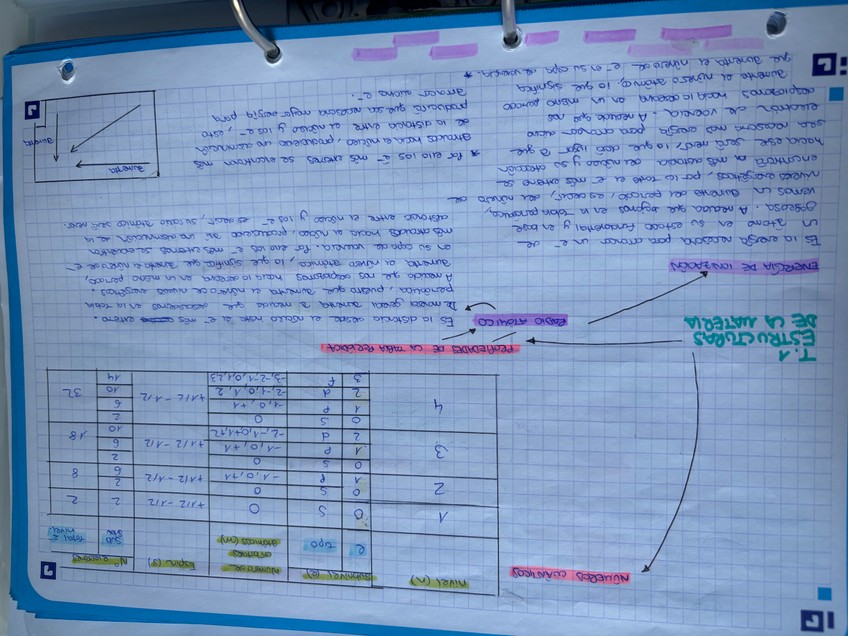 NÚMEROS CUÁNTICOS
NIVEL (n)
SUBNIVEL (l)
l
TIPO
Número de orbitales atómicos (m)
Espin (s)
Nº electrones
Sub niv
Total x nivel
1 0 S 0 +1/2 -1/2 2 2
2 0 S 0 2
1 P -1, 0, +1 +1/2 -1/2 6 8
3 0 S 0 2
1 P -1, 0, +1 +1/2 -1/2 6 18
2 d -2, -1, 0, +1, +2 10
4 0 S 0 2
1 P -1, 0, +1 6
2 d -2, -1, 0, 1, 2 +1/2 -1/2 10 32
3 F -3, -2, -1, 0, 1, 2, 3 14
T.1
ESTRUCTURAS
DE LA MATERIA
PROPIEDADES DE LA TABLA PERIÓDICA
RADIO ATÓMICO
Es la distancia desde el núcleo hasta el e⁻ más externo.
De manera general a medida que descendemos en la tabla
periódica, puesto que aumenta el número de niveles energéticos.
A medida que nos desplazamos hacia la derecha en un mismo periodo,
aumenta el número atómico, lo que significa que aumenta el nivel de e⁻
en su capa de valencia. Por ello los e⁻ más externos se encuentran
más atraídos hacia el núcleo, produciéndose así una disminución de la
distancia entre el núcleo y los e⁻, es decir, su radio atómico será menor.
ENERGÍA DE IONIZACIÓN
Es la energía necesaria para arrancar un e⁻ de
un átomo en su estado fundamental y en fase
gaseosa. A medida que bajamos en la tabla periódica,
vemos un aumento del periodo, es decir, del número de
niveles energéticos, por lo tanto el e⁻ más externo se
encontrará a más distancia del núcleo y su atracción
hacia este será menor, lo que dará lugar a que
sea necesaria más energía para arrancar dicho
electrón de valencia. A medida que nos
desplazamos hacia la derecha en un mismo periodo
aumenta el número atómico, lo que significa
que aumenta el número de e⁻ en su capa de valencia. *
* Por ello los e⁻ más externos se encuentran más
atraídos hacia el núcleo produciéndose una disminución
de la distancia entre el núcleo y los e⁻, esto
producirá que sea necesaria mayor energía para
arrancar dichos e⁻.
aumenta
aumenta